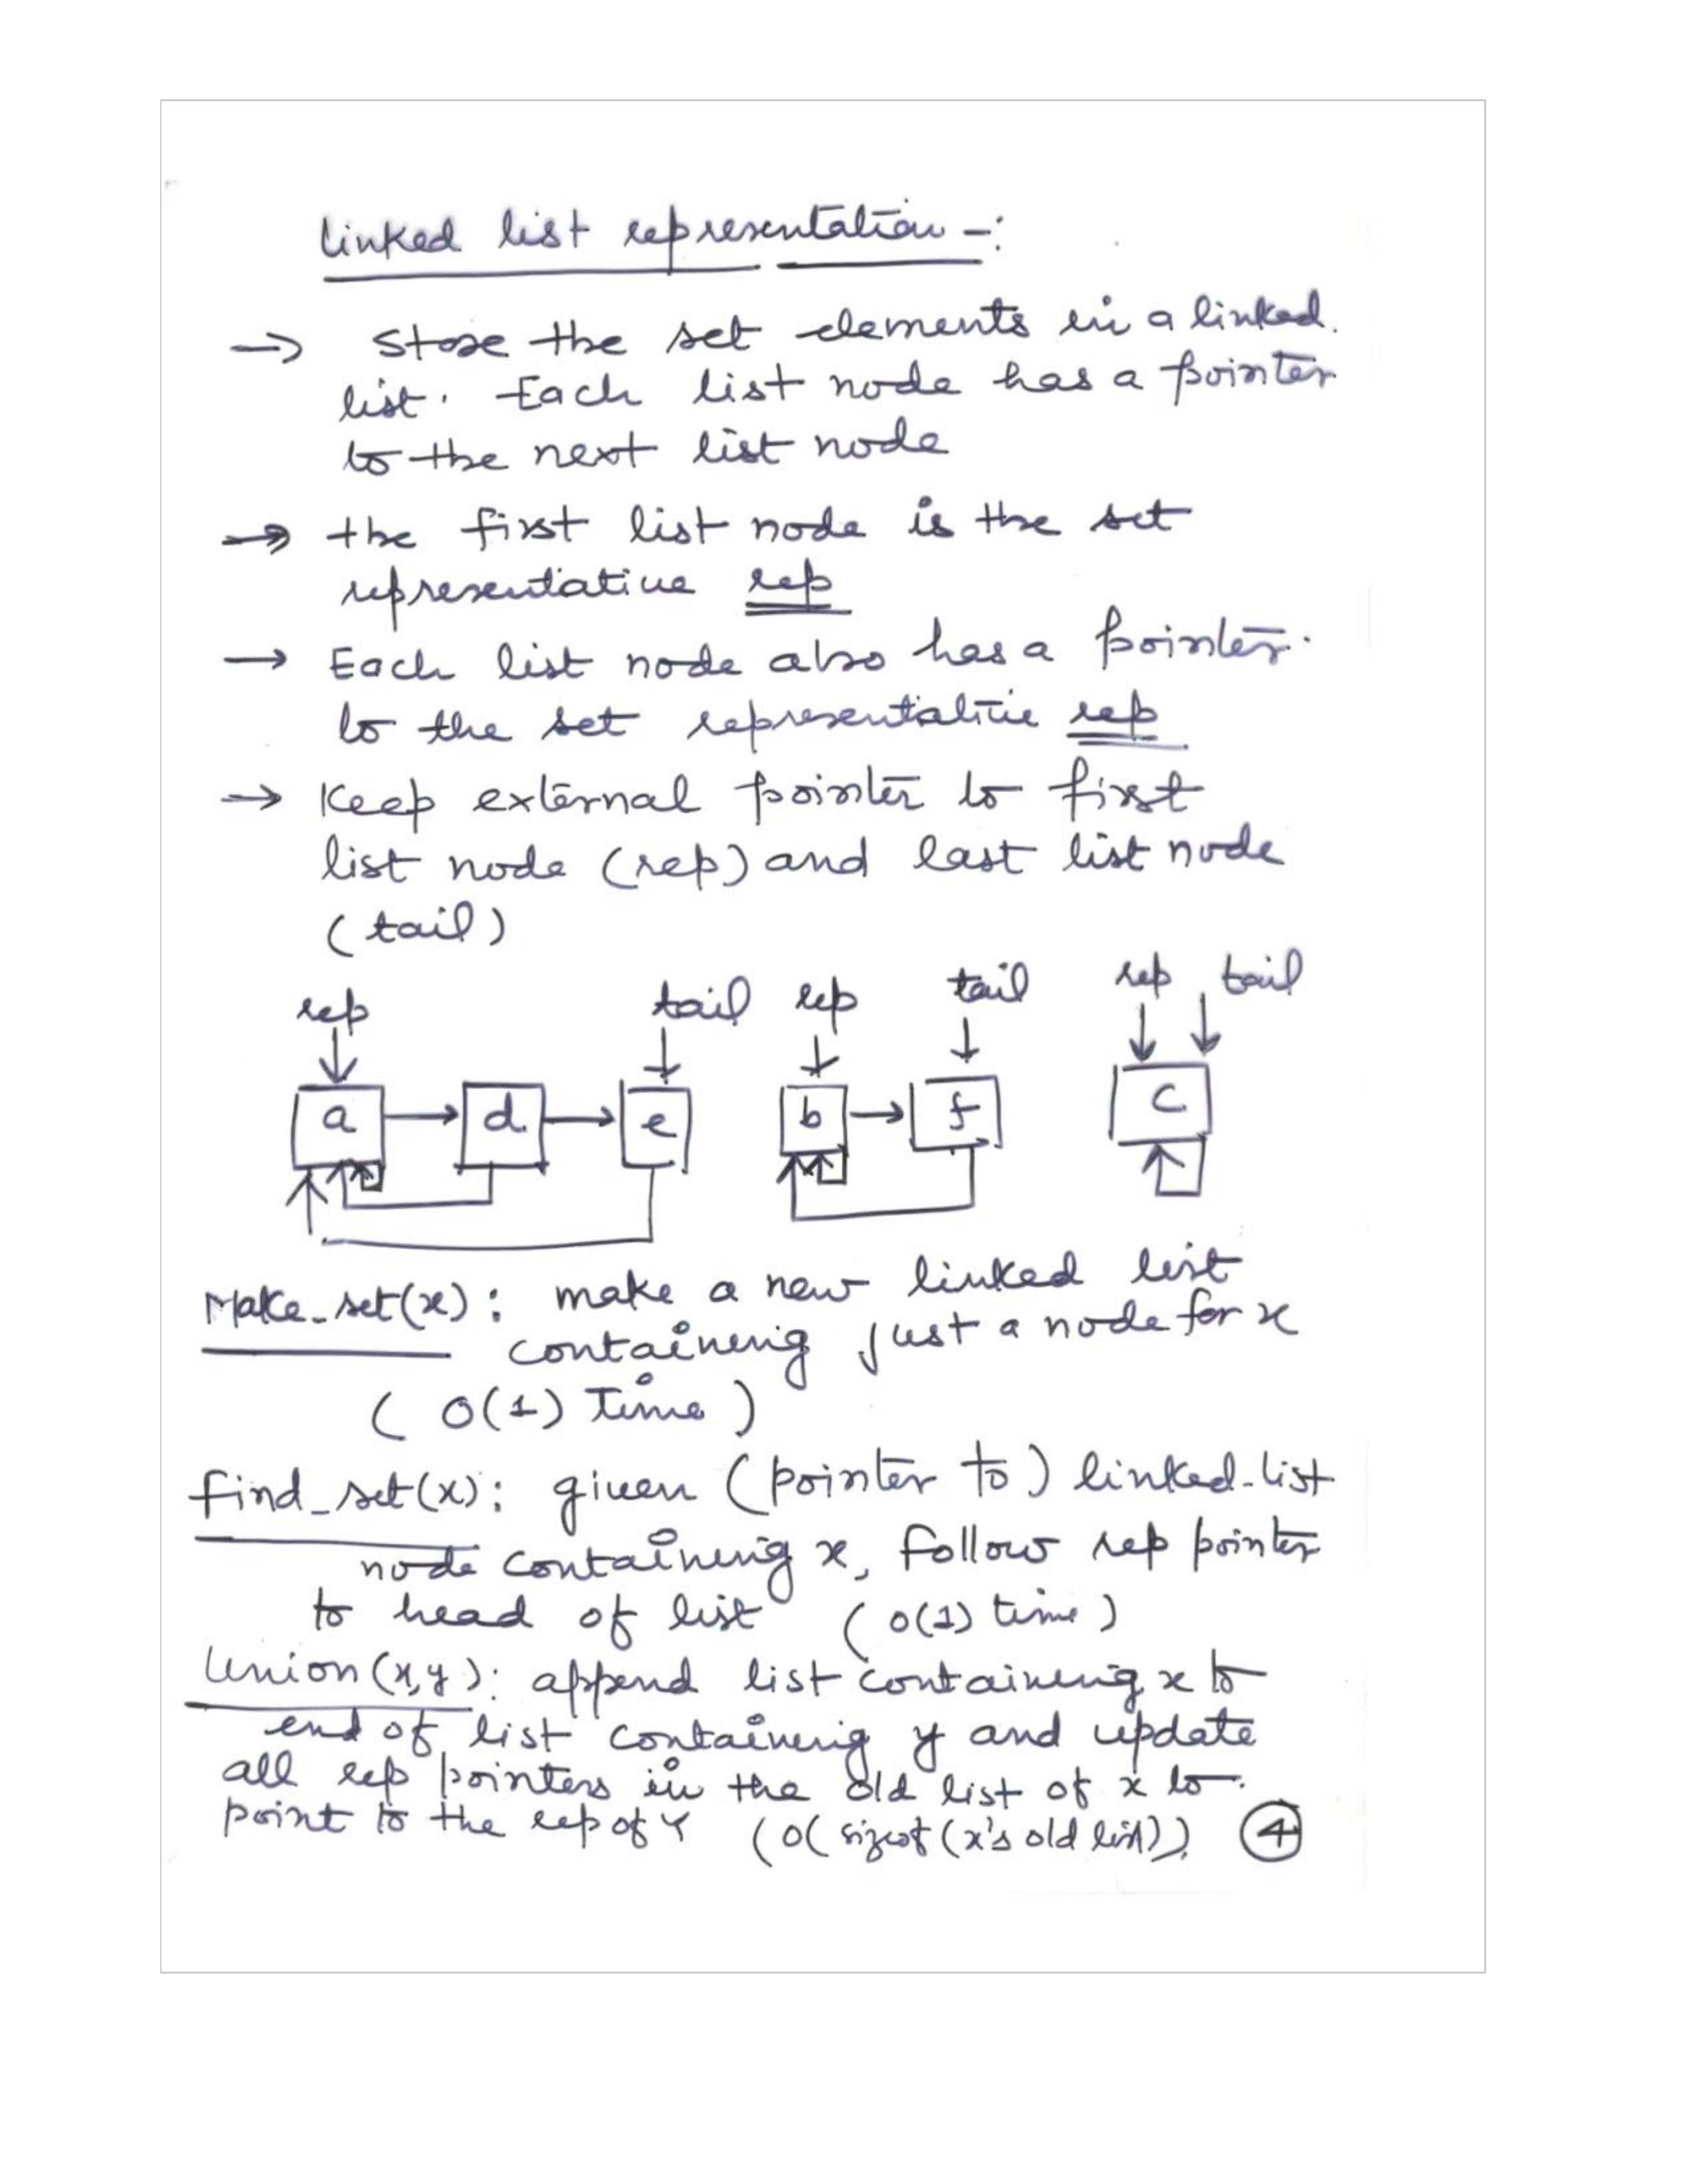 linked list representation -:
→ Store the set elements in a linked
list. Each list node has a pointer
to the next list node
→ the first list node is the set
representative rep
→ Each list node also has a pointer
to the set representative rep
→ Keep external pointer to first
list node (rep) and last list node
(tail)
rep tail rep tail rep tail
a d e b f c
Make_set(x): make a new linked list
containing just a node for x
( O(1) Time )
find_set(x): given (pointer to) linked-list
node containing x, follow rep pointer
to head of list ( O(1) time )
Union(x,y): append list containing x to
end of list containing y and update
all rep pointers in the old list of x to
point to the rep of Y (O( size of (x's old list))
4